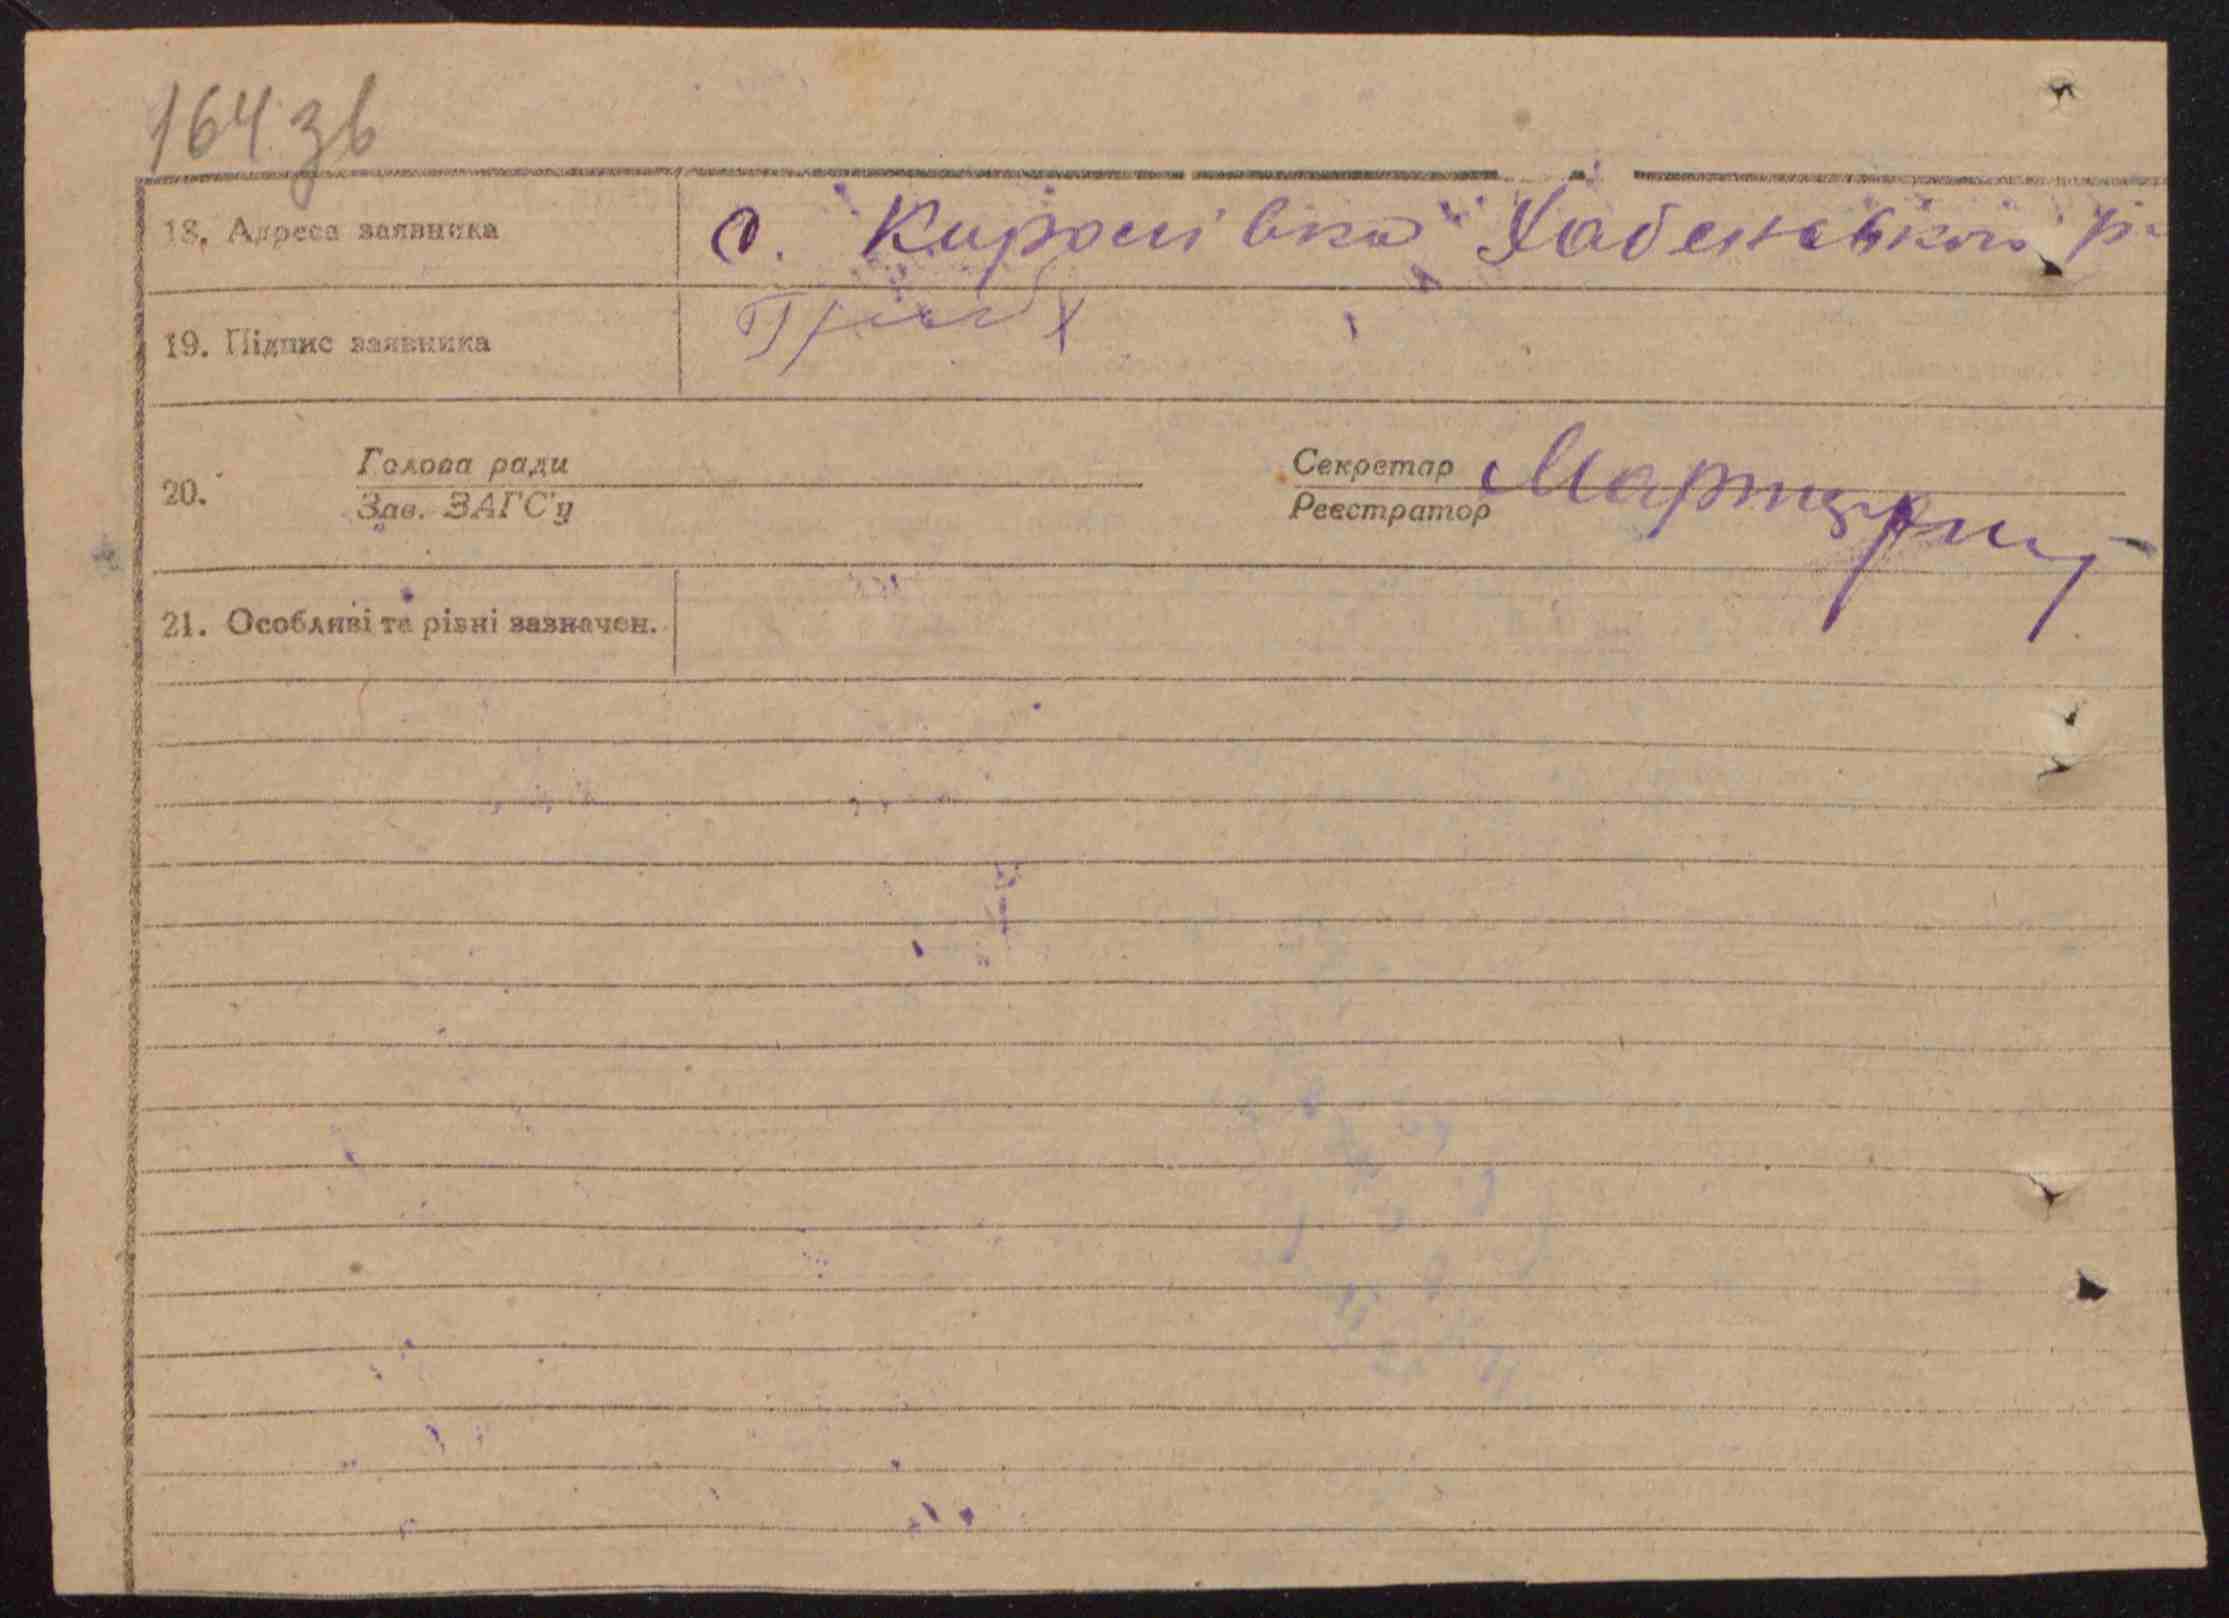 164 зв
18. Адреса заявника с. Хабенського р-
19. Підпис заявника
Голова ради Секретар
20.
Зав. ЗАГС'у Реєстратор
21. Особливі та різні зазначен.